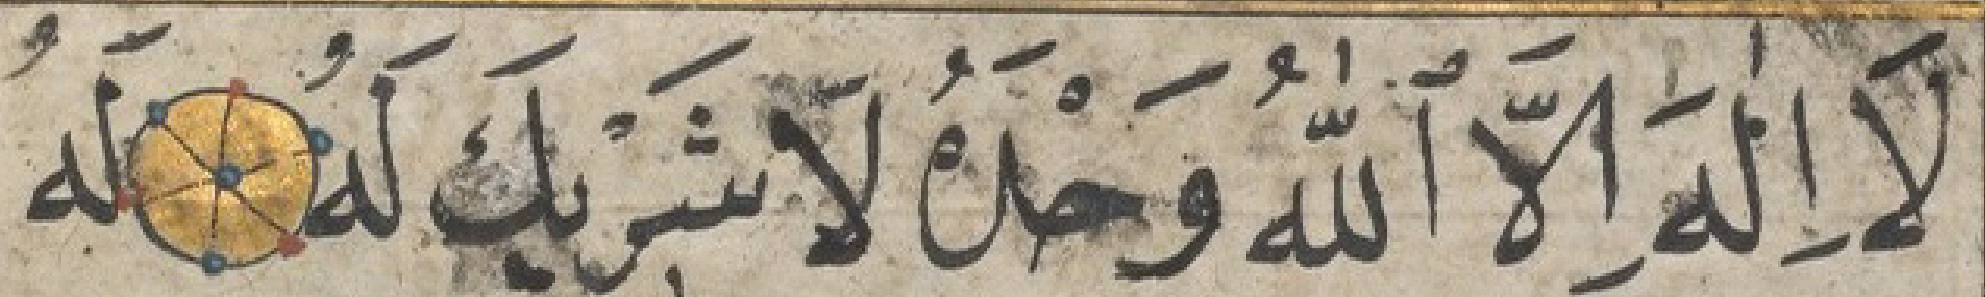 لَا اِلٰهَ اِلَّا ٱللّٰهُ وَحْدَهُ لَا شَرِيْكَ لَهُ لَهُ